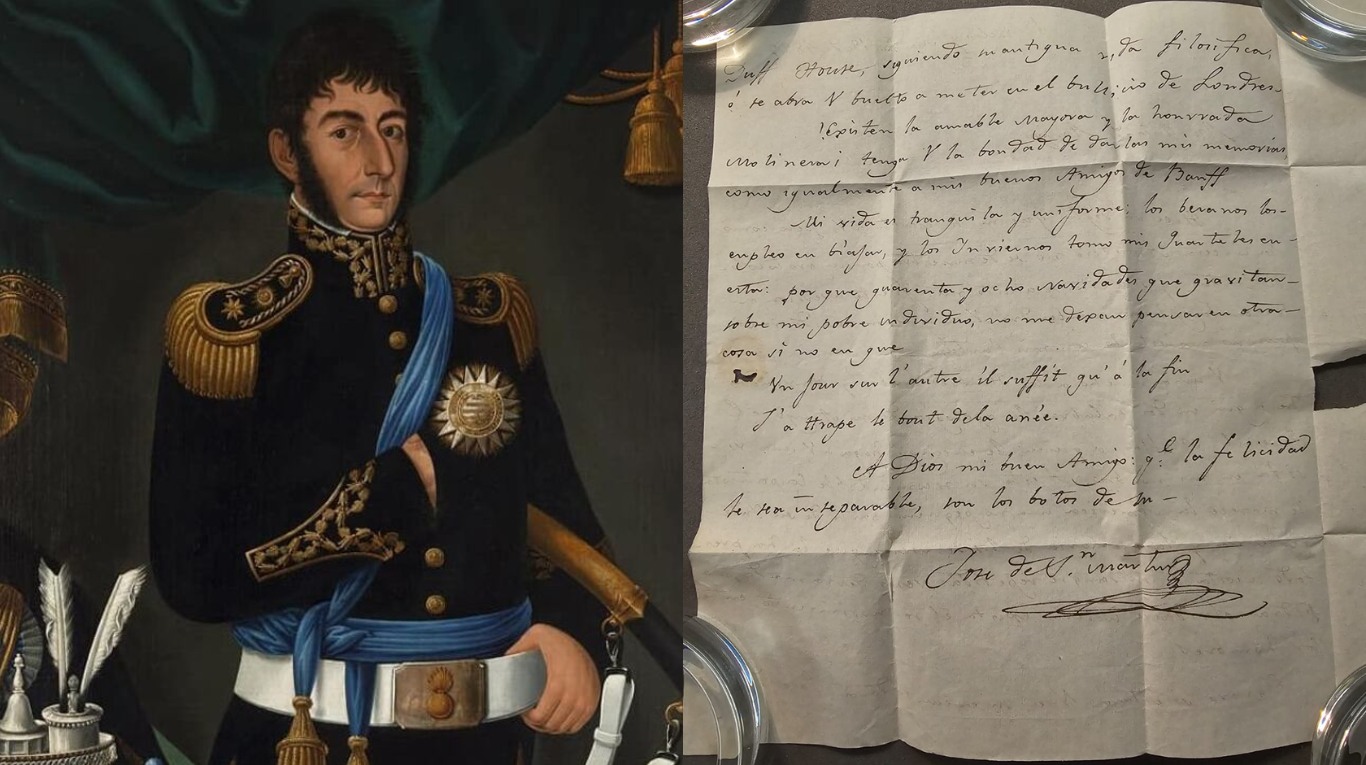 Duff House, siguiendo su antigua vida filosófica,
ó se abra V buelto a meter en el bullicio de Londres.
¿Existen la amable Mayora y la honrrada
Molinera? tenga V la bondad de darlas mis memorias,
como igualmente a mis buenos Amigos de Banff
Mi vida es tranquila y uniforme: los beranos los
empleo en biajar, y los Inviernos tomo mis Quarteles en
esta: por que quarenta y ocho Navidades que gravitan
sobre mi pobre individuo, no me dexan pensar en otra
cosa si no en que
Un Jour sur l'autre il suffit qu'à la fin
J'attrape le bout de la anée.
A Dios mi buen Amigo: qe la felicidad
le sea inseparable, son los botos de su
José de Sn Martin